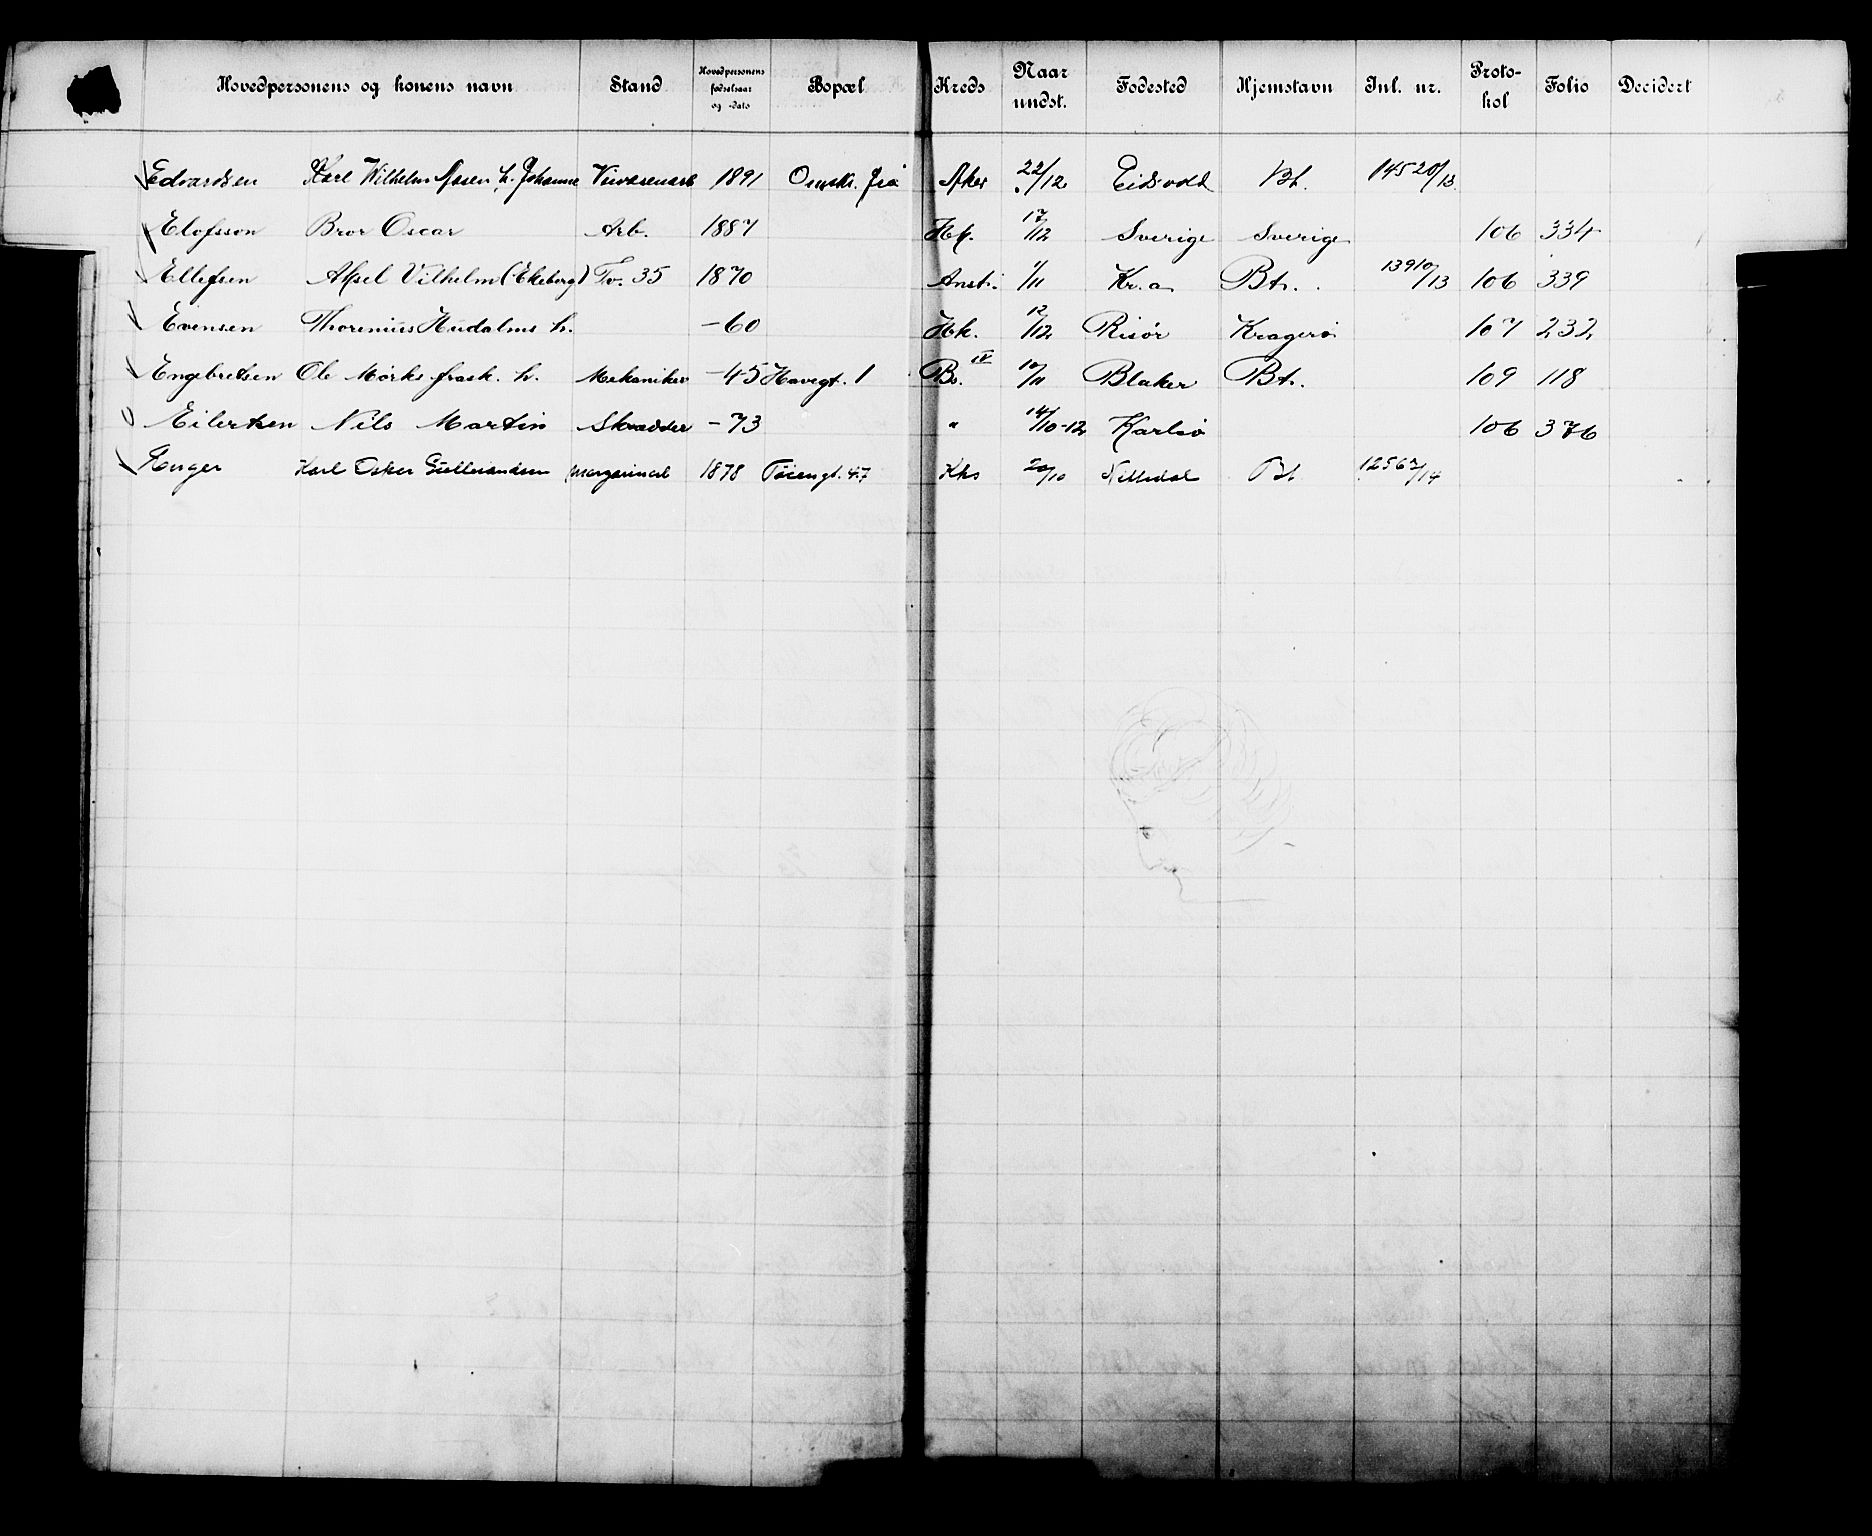 Hovedpersonens og konens navn Stand Hovedpersonens fødselsaar og -dato Bopæl Kreds Naar undst. Fødested Hjemstavn Inl. nr. Protokol Folio Decidert
Edvardsen Karl Wilhelm Aasen h. Johanne 1891 Omsk. fra Aker 22/12 Eidsvold Bt. 14520/13
Elofsson Bror Oscar Arb. 1887 Hk. 17/12 Sverige Sverige 106 334
Ellefsen Aksel Vilhelm (Ekeberg) Tv. 35 1870 Anst. 1/11 Kr.a Bt. 13910/13 106 339
Evensen Thorenius Hudalms h. -60 Hk. 12/12 Risør Kragerø 107 232
Engebretsen Ole Mørks frask. h. Mekaniker -45 Havegt. 1 Bs. IV 10/11 Blaker Bt. 109 118
Eilertsen Nils Martin Skrædder -73 " 14/10-12 Karlsø 106 376
Enger Karl Oskar Gulbrandsen Margarinarb 1878 Tøiengt. 47 Kks 20/10 Nittedal Bt 12567/14